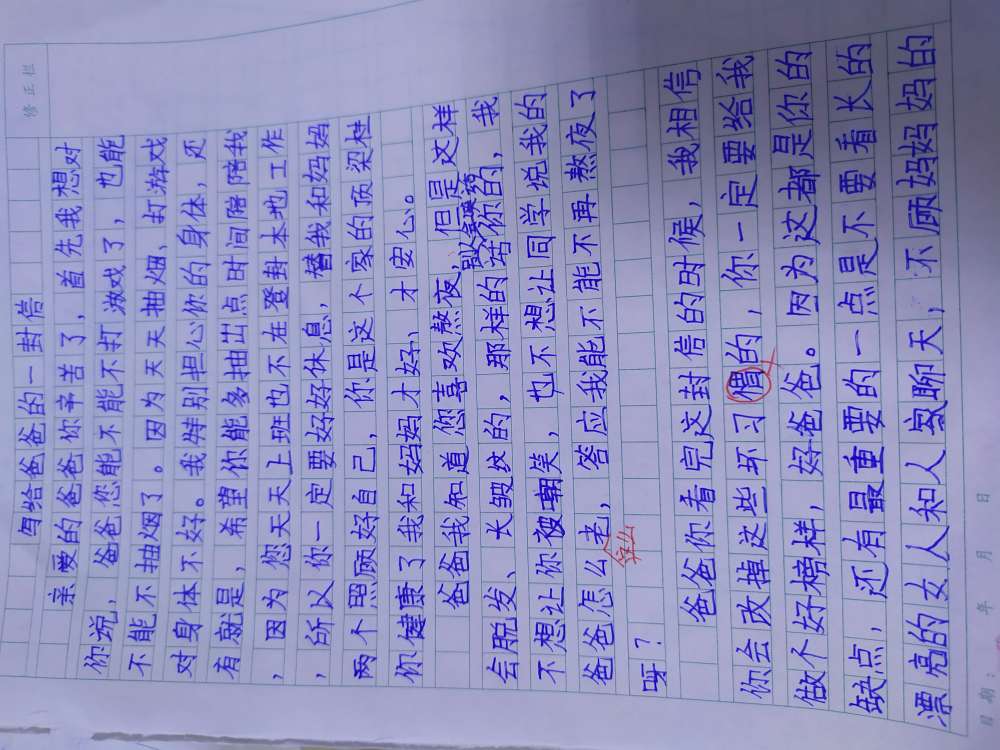 修正栏
写给爸爸的一封信
亲爱的爸爸你辛苦了，首先我想对
你说，爸爸您能不能不打游戏了，也能
不能不抽烟了。因为天天抽烟、打游戏
对身体不好。我特别担心你的身体，还
有就是，希望你能多抽出点时间陪我
，因为您天天上班也不在登封本地工作
，所以你一定要好好休息，替我和妈妈
两个照顾好自己，你是这个家的顶梁柱
你健康了我和妈妈才好、才安心。
爸爸我知道您喜欢熬夜，但是这样
会脱发、长皱纹的，那样的话你的，我
不想让你被嘲笑，也不想让同学说我的
爸爸怎么老，答应我能不能不再熬夜了
这么
呀？
爸爸你看完这封信的时候，我相信
你会改掉这些坏习惯的，你一定要给我
做个好榜样，好爸爸。因为这都是你的
缺点，还有最重要的一点是不要看长的
漂亮的女人和人家聊天，不顾妈妈妈的
日期： 年 月 日